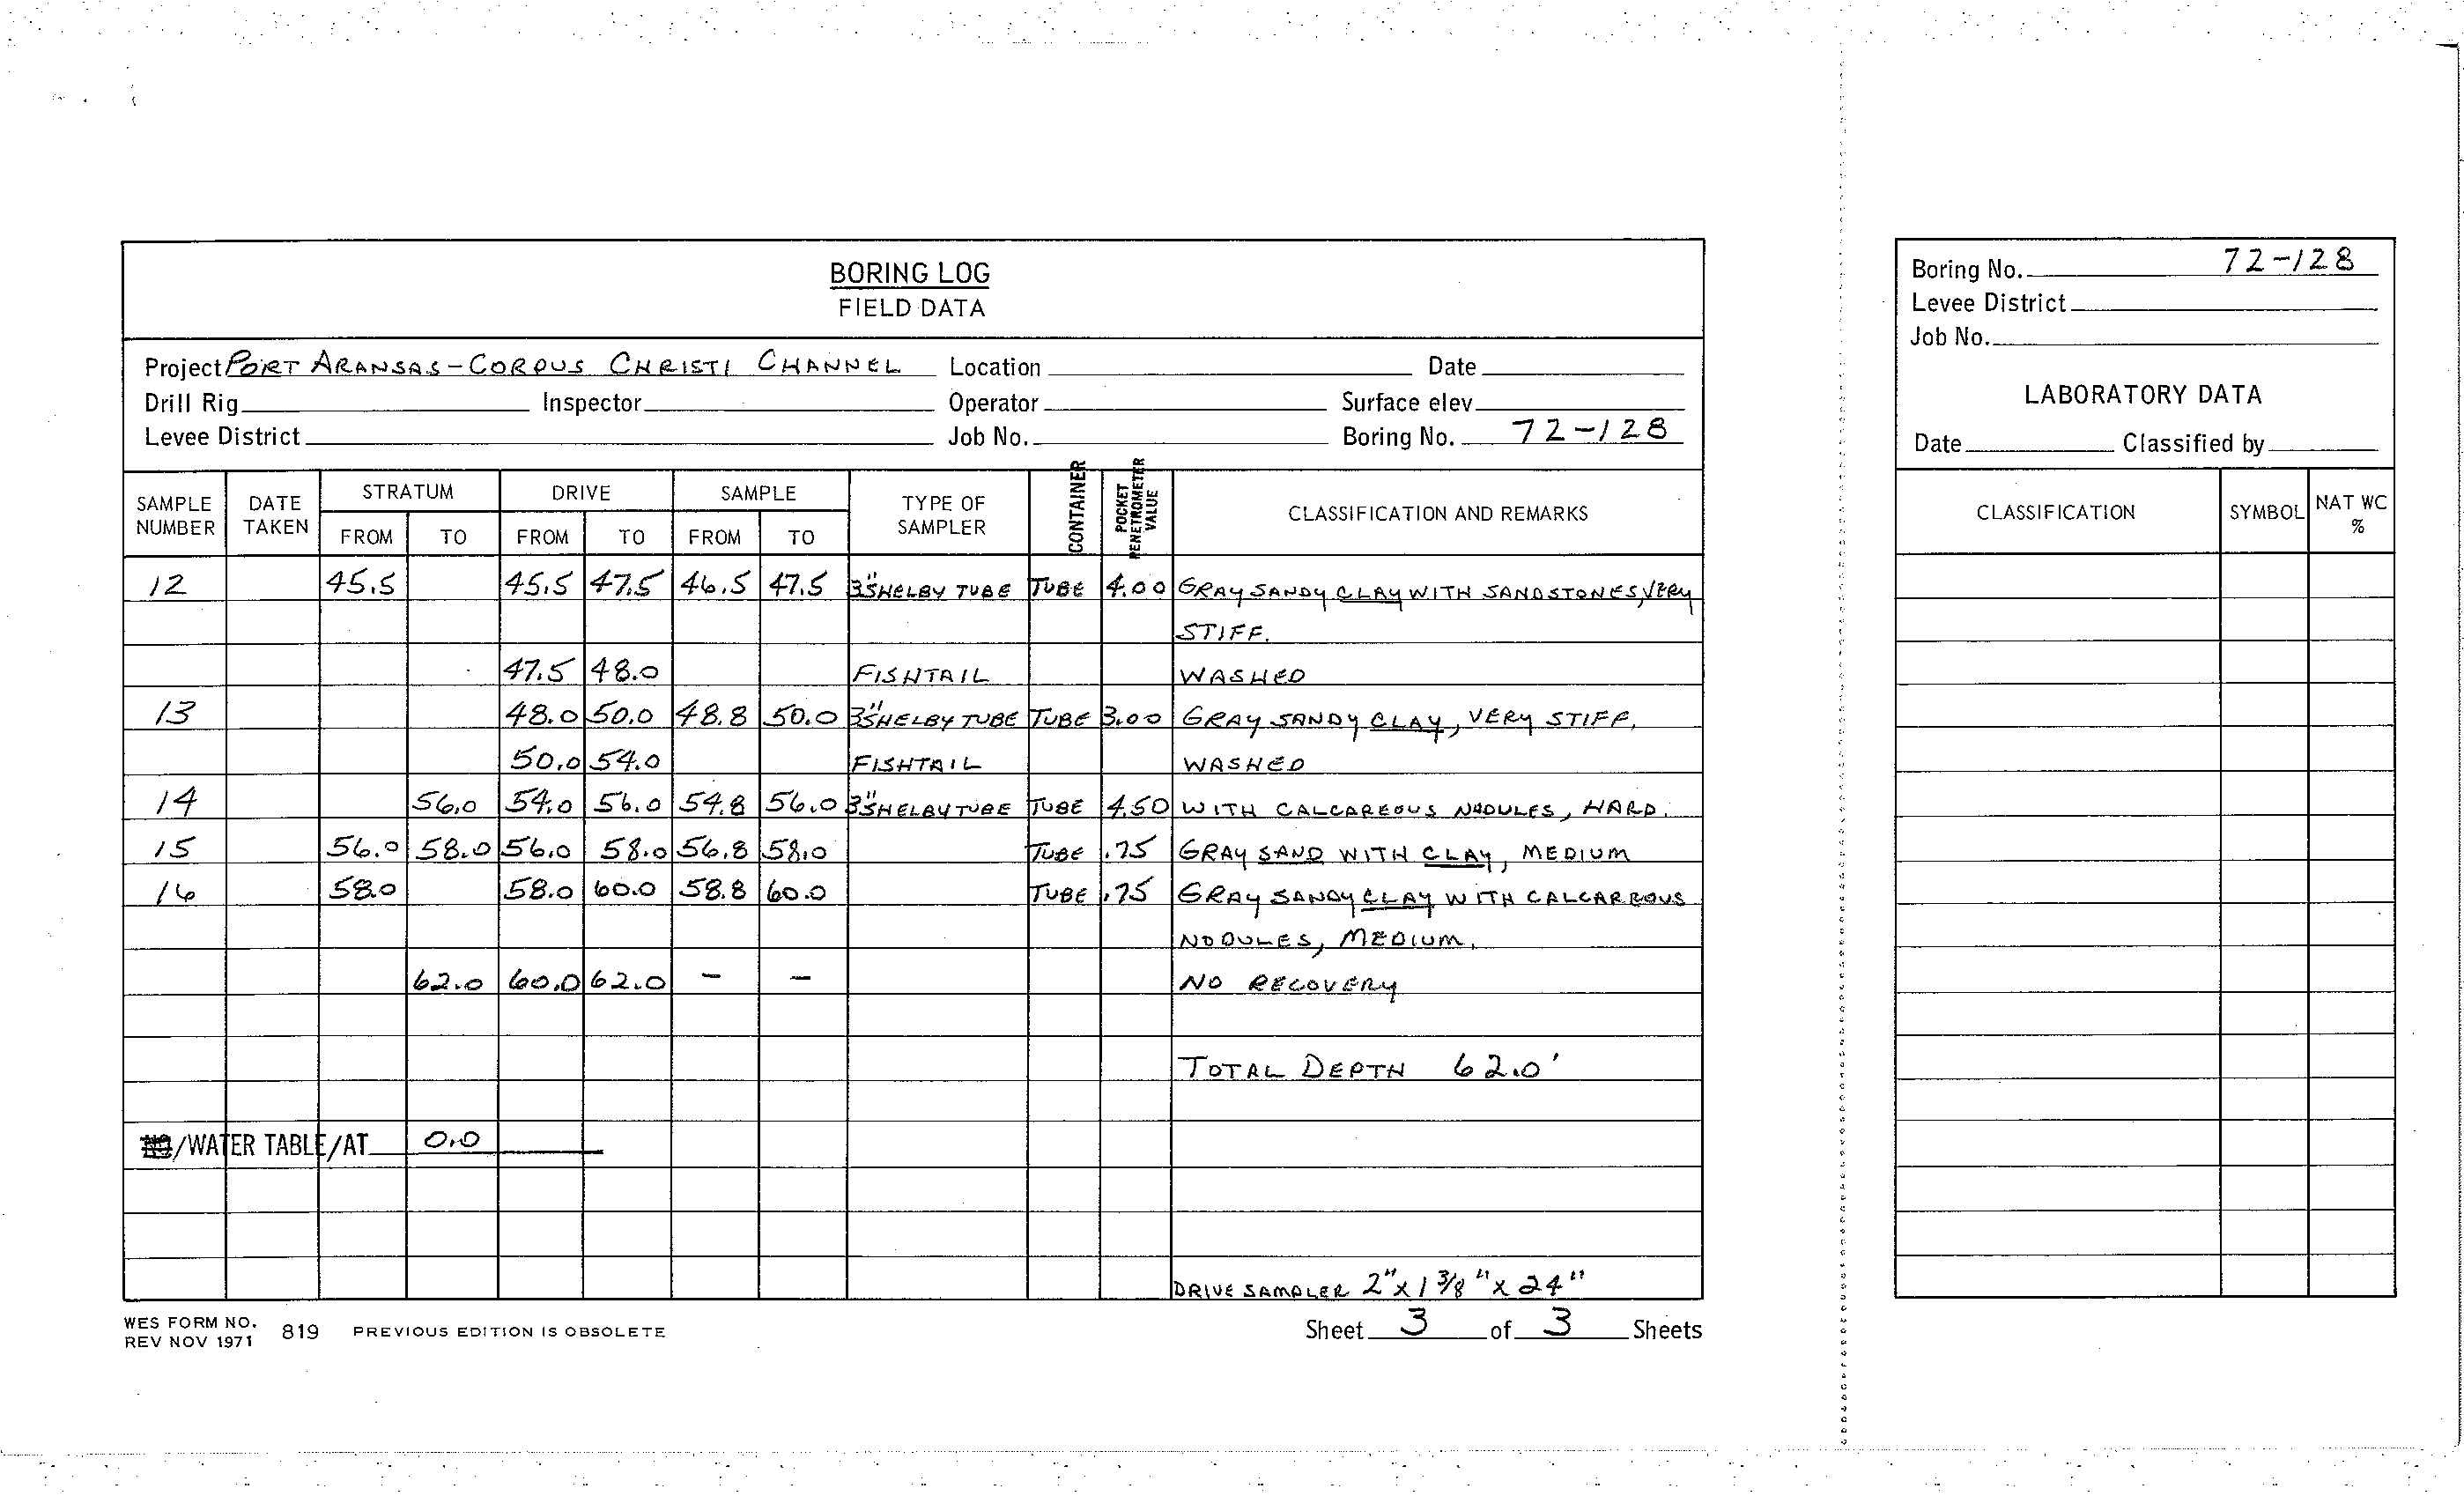 BORING LOG
FIELD DATA
Project PORT ARANSAS-CORPUS CHRISTI CHANNEL Location Date
Drill Rig Inspector Operator Surface elev
Levee District Job No. Boring No. 72-128
SAMPLE NUMBER DATE TAKEN STRATUM FROM TO DRIVE FROM TO SAMPLE FROM TO TYPE OF SAMPLER CONTAINER POCKET PENETROMETER VALUE CLASSIFICATION AND REMARKS
12 45.5 45.5 47.5 46.5 47.5 3" SHELBY TUBE TUBE 4.00 GRAY SANDY CLAY WITH SANDSTONES, VERY
STIFF.
47.5 48.0 FISHTAIL WASHED
13 48.0 50.0 48.8 50.0 3" SHELBY TUBE TUBE 3.00 GRAY SANDY CLAY, VERY STIFF,
50.0 54.0 FISHTAIL WASHED
14 56.0 54.0 56.0 54.8 56.0 3" SHELBY TUBE TUBE 4.50 WITH CALCAREOUS NODULES, HARD.
15 56.0 58.0 56.0 58.0 56.8 58.0 TUBE .75 GRAY SAND WITH CLAY, MEDIUM
16 58.0 58.0 60.0 58.8 60.0 TUBE .75 GRAY SANDY CLAY WITH CALCARROUS
NODULES, MEDIUM.
62.0 60.0 62.0 - - NO RECOVERY
TOTAL DEPTH 62.0'
/WATER TABLE/AT 0.0
DRIVE SAMPLER 2" x 1 3/8" x 24"
WES FORM NO. 819 PREVIOUS EDITION IS OBSOLETE
REV NOV 1971
Sheet 3 of 3 Sheets
Boring No. 72-128
Levee District
Job No.
LABORATORY DATA
Date Classified by
CLASSIFICATION SYMBOL NAT WC %